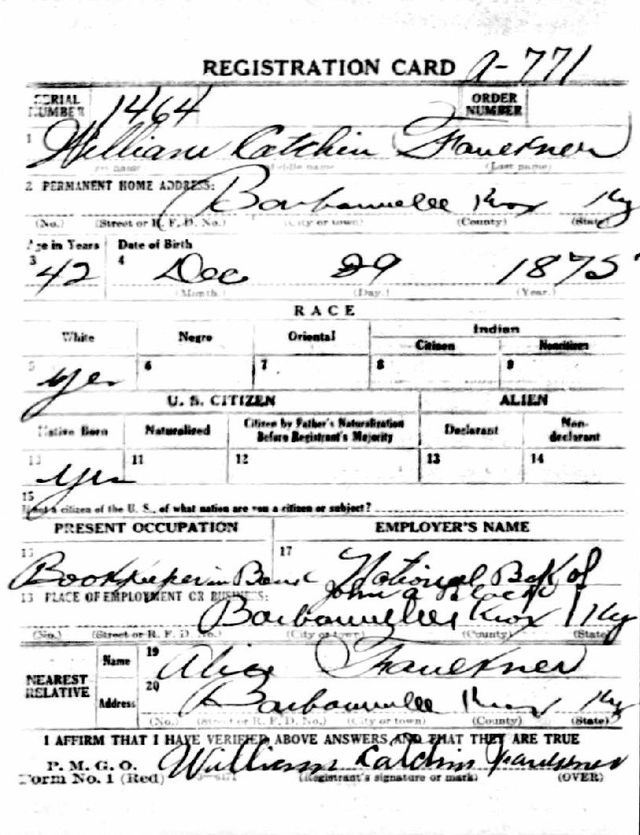 REGISTRATION CARD A-771
SERIAL NUMBER 1464 ORDER NUMBER
1 William Catchin Faulkner
(Middle name) (Last name)
2 PERMANENT HOME ADDRESS:
Barbourville Knox Ky
(No.) (Street or R. F. D. No.) (City or town) (County) (State)
Age in Years Date of Birth
3 42 4 Dec 29 1875
(Month.) (Day.) (Year.)
RACE
White Negro Oriental Indian
Citizen Noncitizen
5 Yes 6 7 8 9
U. S. CITIZEN ALIEN
Native Born Naturalized Citizen by Father's Naturalization Before Registrant's Majority Declarant Non-declarant
10 Yes 11 12 13 14
15
If not a citizen of the U. S., of what nation are you a citizen or subject?
PRESENT OCCUPATION EMPLOYER'S NAME
16 Bookkeeper in Bank 17 National Bk of
John A Black
18 PLACE OF EMPLOYMENT OR BUSINESS:
Barbourville Knox Ky
(No.) (Street or R. F. D. No.) (City or town) (County) (State)
NEAREST RELATIVE Name 19 Alice Faulkner
Address 20 Barbourville Knox Ky
(No.) (Street or R. F. D. No.) (City or town) (County) (State)
I AFFIRM THAT I HAVE VERIFIED ABOVE ANSWERS AND THAT THEY ARE TRUE
P. M. G. O.
Form No. 1 (Red) William Catchin Faulkner
(Registrant's signature or mark) (OVER)